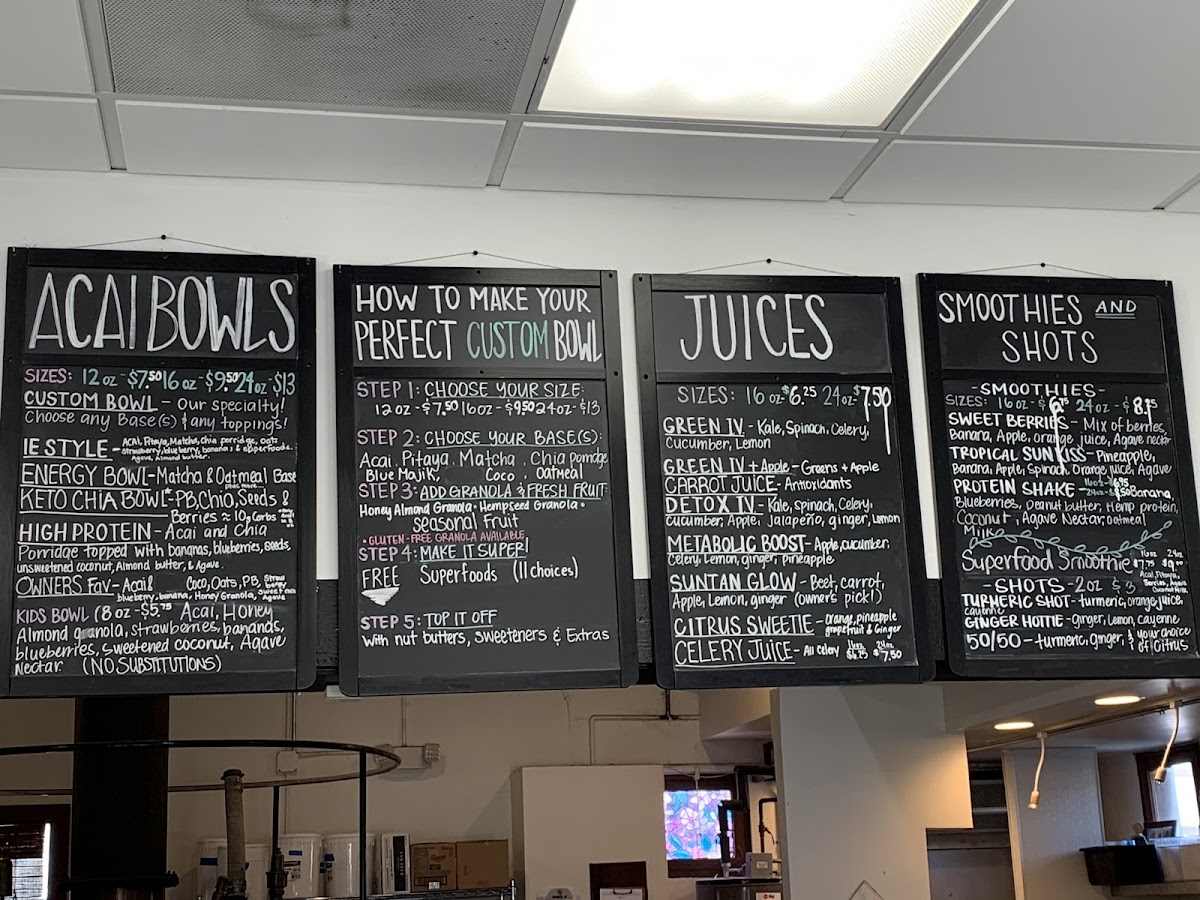 ACAI BOWLS
SIZES: 12 oz - $7.50 16 oz - $9.50 24 oz - $13
CUSTOM BOWL - Our specialty!
Choose any Base(s) & any toppings!
IE STYLE - Acai, Pitaya, Matcha, chia porridge, oats
strawberry, blueberry, banana & superfoods.
Agave, Almond butter.
ENERGY BOWL - Matcha & Oatmeal Base
plus more...
KETO CHIA BOWL - PB, Chia, Seeds &
Berries ≈ 10g Carbs
HIGH PROTEIN - Acai and Chia
Porridge topped with bananas, blueberries, seeds,
unsweetened coconut, Almond butter, & Agave.
OWNERS Fav - Acai & Coco, Oats, PB, Straw
blueberry, banana, Honey Granola, sweet coco
Agave
KIDS BOWL (8 oz - $5.75 Acai, Honey
Almond granola, strawberries, bananas
blueberries, sweetened coconut, Agave
Nectar (NO SUBSTITUTIONS)
HOW TO MAKE YOUR
PERFECT CUSTOM BOWL
STEP 1: CHOOSE YOUR SIZE:
12 oz - $7.50 16 oz - $9.50 24 oz - $13
STEP 2: CHOOSE YOUR BASE(S):
Acai, Pitaya, Matcha, Chia porridge
Blue Majik, Coco, oatmeal
STEP 3: ADD GRANOLA & FRESH FRUIT:
Honey Almond Granola • Hempseed Granola •
seasonal Fruit
• GLUTEN-FREE GRANOLA AVAILABLE
STEP 4: MAKE IT SUPER!
FREE Superfoods (11 choices)
STEP 5: TOP IT OFF
With nut butters, sweeteners & Extras
JUICES
SIZES: 16 oz $6.25 24 oz $7.50
GREEN IV - Kale, Spinach, Celery,
Cucumber, Lemon
GREEN IV + Apple - Greens + Apple
CARROT JUICE - Antioxidants
DETOX IV - Kale, spinach, Celery,
Cucumber, Apple, Jalapeño, ginger, Lemon
METABOLIC BOOST - Apple, cucumber,
Celery, Lemon, ginger, pineapple
SUNTAN GLOW - Beet, carrot,
Apple, Lemon, ginger (owners pick!)
CITRUS SWEETIE - orange, pineapple
grapefruit & Ginger
CELERY JUICE - All celery 16oz $6.25 24oz $7.50
SMOOTHIES AND
SHOTS
- SMOOTHIES -
SIZES: 16 oz - 24 oz - $8.25
SWEET BERRIES - Mix of berries,
Banana, Apple, orange juice, Agave nectar
TROPICAL SUN KISS - Pineapple,
Banana, Apple, Spinach, Orange juice, Agave
PROTEIN SHAKE - 16oz - $6.95 24oz - $8.50 Banana,
Blueberries, Peanut butter, Hemp protein,
Coconut, Agave Nectar, oatmeal
Milk
Superfood Smoothie 16oz $7.75 24oz $9.00
Acai, Pitaya,
Berries, Agave
Coconut Milk
- SHOTS - 2 oz $3
TURMERIC SHOT - turmeric, orange juice,
cayenne
GINGER HOTTIE - ginger, Lemon, cayenne
50/50 - turmeric, ginger, & your choice
of Citrus